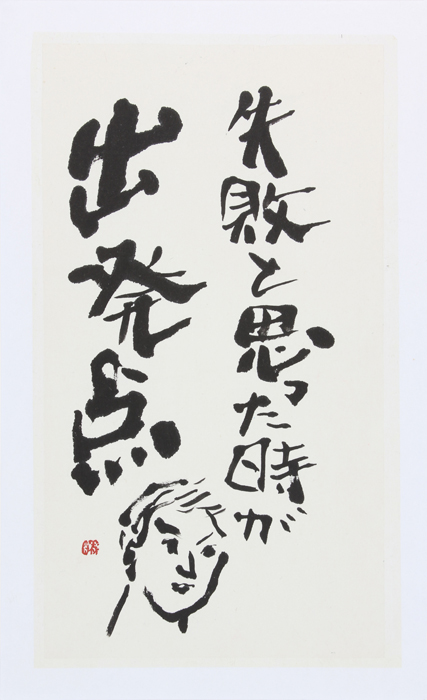 失敗と思った時が
出発点